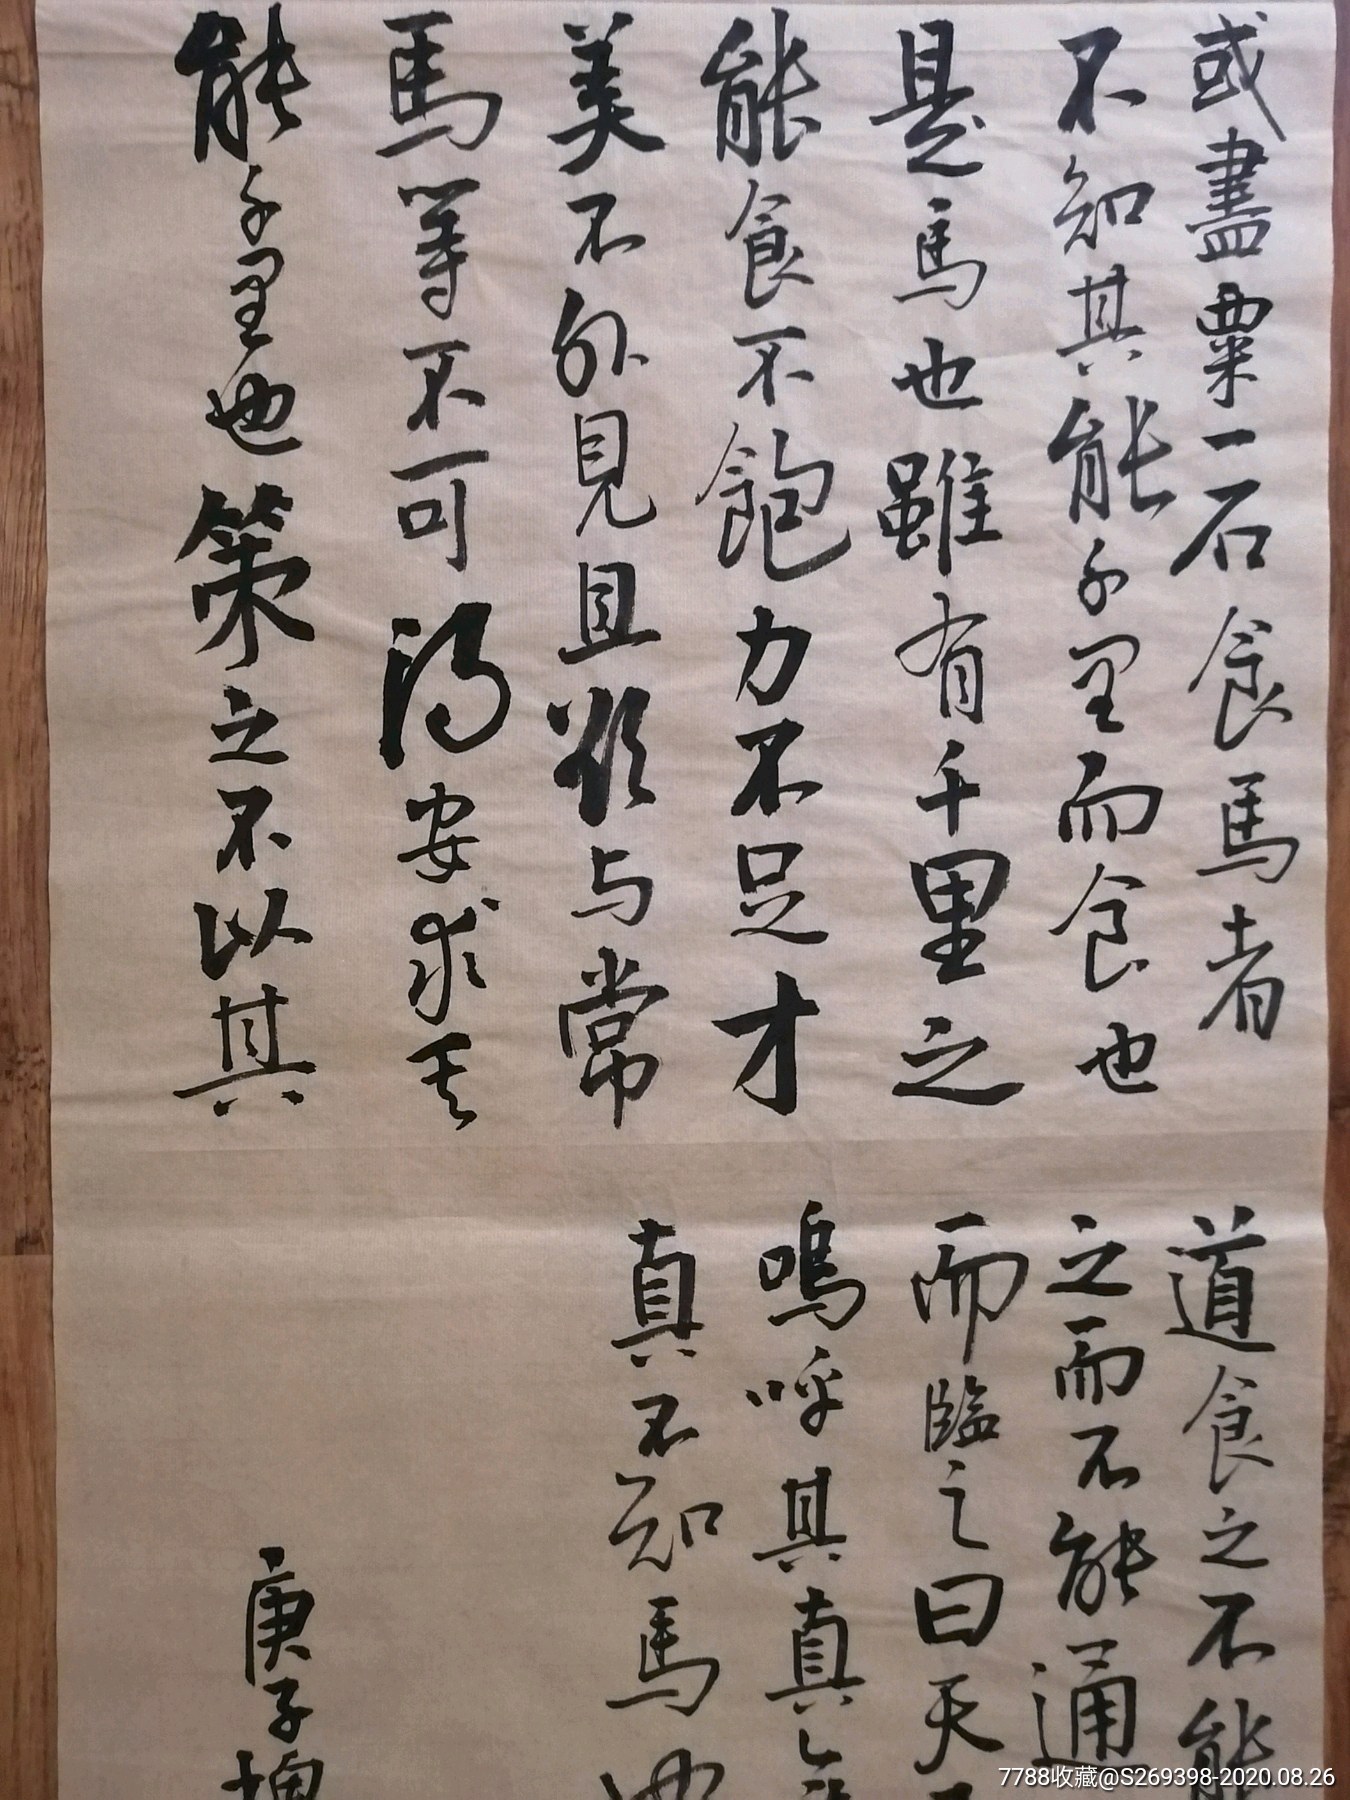 或盡粟一石食馬者
不知其能千里而食也
是馬也雖有千里之
能食不飽力不足才
美不外見且欲与常
馬等不可得安求其
能千里也策之不以其
道食之不能
之而不能通
而臨之曰天
嗚呼其真
真不知馬也
庚子
7788收藏@S269398-2020.08.26